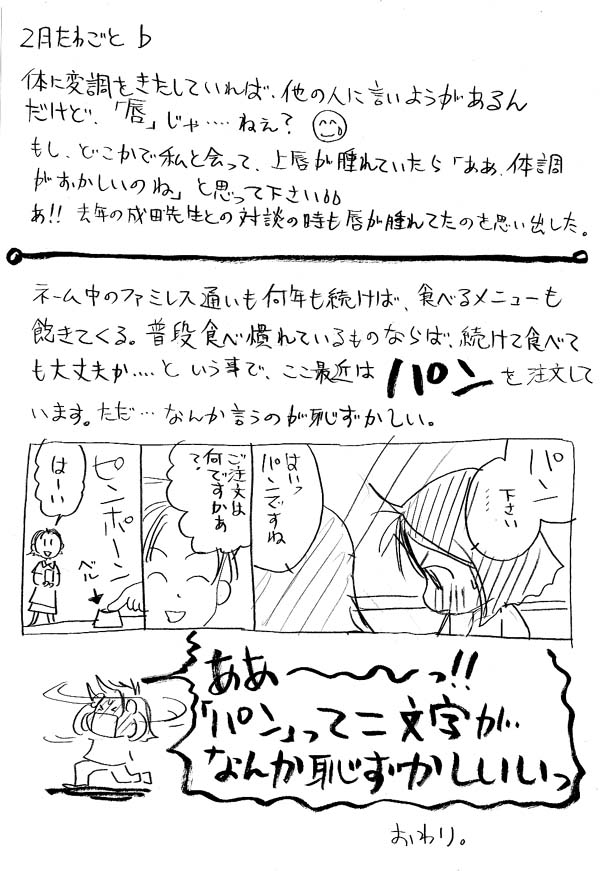 2月たわごと b
体に変調をきたしていれば、他の人に言いようがあるん
だけど、「唇」じゃ‥‥ねぇ?
もし、どこかで私と会って、上唇が腫れていたら「ああ、体調
がおかしいのね」と思って下さい。
あ!! 去年の成田先生との対談の時も唇が腫れてたのを思い出した。
ネーム中のファミレス通いも何年も続けば、食べるメニューも
飽きてくる。普段食べ慣れているものならば、続けて食べて
も大丈夫か‥‥という事で、ここ最近は パン を注文して
います。ただ…なんか言うのが恥ずかしい。
ピンポーン
ベル
はーい
ご注文は
何ですかぁ
?
パン
…下さい
はいっ
パンですね
ああ〜〜〜っ!!
「パン」って二文字が
なんか恥ずかしいいっ
おわり。